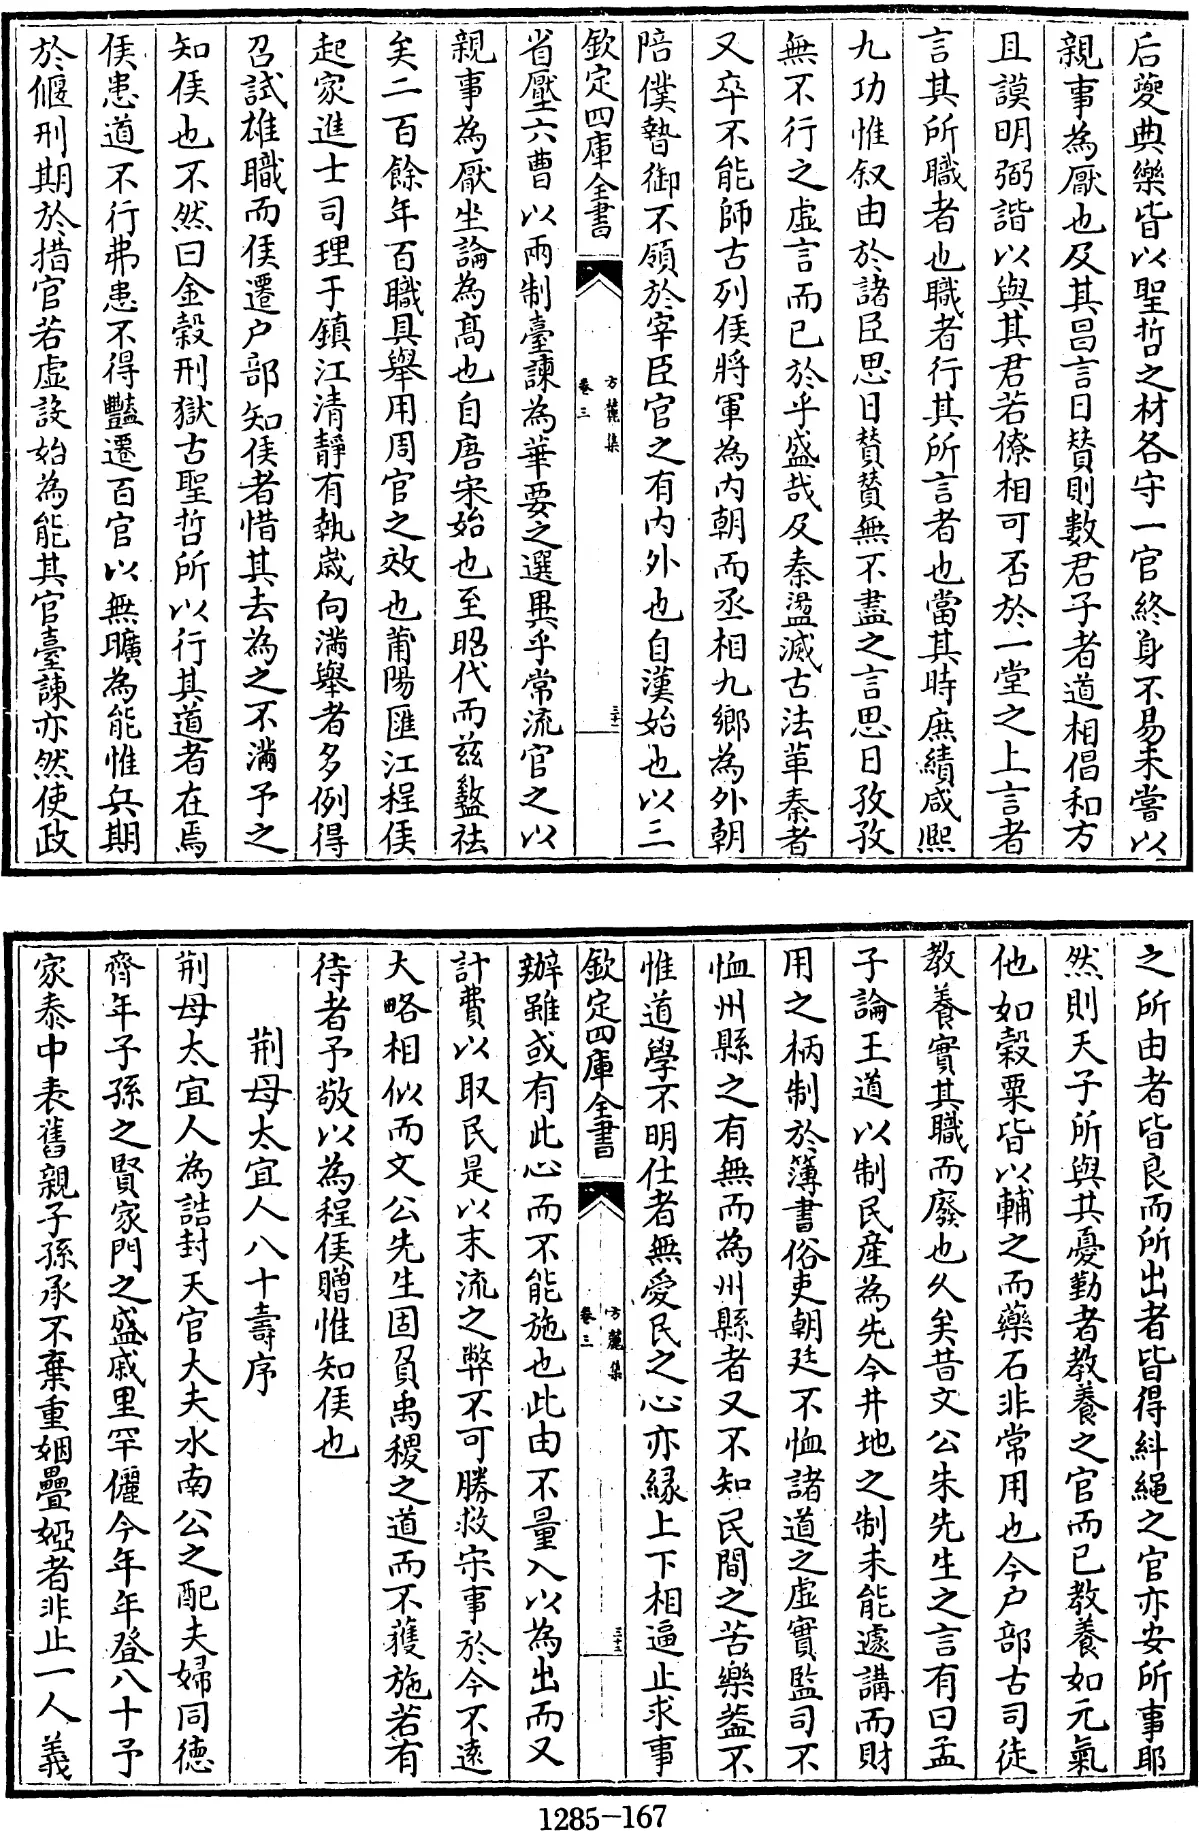 后夔典樂皆以聖哲之材各守一官終身不易未嘗以
親事為厭也及其昌言曰贊則數君子者道相倡和方
且謨明弼諧以與其君若僚相可否於一堂之上言者
言其所職者也職者行其所言者也當其時庶績咸熙
九功惟叙由於諸臣思日贊贊無不盡之言思日孜孜
無不行之虛言而已於乎盛哉及秦盪滅古法革秦者
又卒不能師古列侯將軍為内朝而丞相九鄉為外朝
陪僕暬御不領於宰臣官之有内外也自漢始也以三
欽定四庫全書
方麓集
卷三
三十一
省壓六曹以兩制臺諫為華要之選異乎常流官之以
親事為厭坐論為髙也自唐宋始也至昭代而兹盭祛
矣二百餘年百職具舉用周官之效也莆陽匯江程侯
起家進士司理于鎮江清靜有執嵗向滿舉者多例得
召試雄職而侯遷户部知侯者惜其去為之不滿予之
知侯也不然曰金穀刑獄古聖哲所以行其道者在焉
侯患道不行弗患不得豔遷百官以無曠為能惟兵期
於偃刑期於措官若虛設始為能其官臺諫亦然使政
之所由者皆良而所出者皆得糾繩之官亦安所事耶
然則天子所與其憂勤者教養之官而已教養如元氣
他如穀粟皆以輔之而藥石非常用也今户部古司徒
教養實其職而廢也乆矣昔文公朱先生之言有曰孟
子論王道以制民産為先今井地之制未能遽講而財
用之柄制於簿書俗吏朝廷不恤諸道之虛實監司不
恤州縣之有無而為州縣者又不知民間之苦樂葢不
惟道學不明仕者無愛民之心亦縁上下相逼止求事
欽定四庫全書
方麓集
卷三
三十二
辦雖或有此心而不能施也此由不量入以為出而又
計費以取民是以末流之弊不可勝救宋事於今不遠
大略相似而文公先生固負禹稷之道而不獲施若有
待者予敬以為程侯贈惟知侯也
荆母太宜人八十壽序
荆母太宜人為誥封天官大夫水南公之配夫婦同德
齊年子孫之賢家門之盛戚里罕儷今年年登八十予
家泰中表舊親子孫承不棄重姻疊婭者非止一人義
1285-167